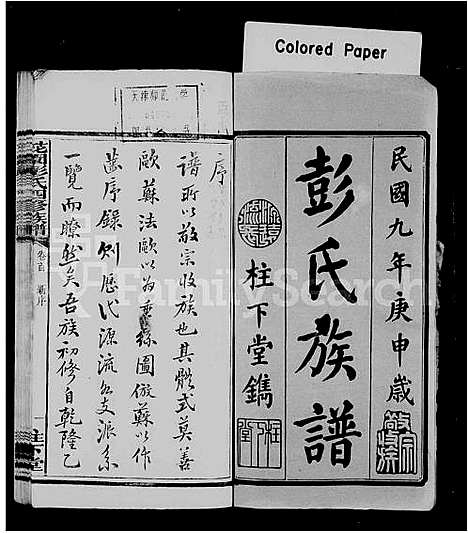 Colored Paper
民國九年庚申歲
彭氏族譜
柱下堂鐫
敬宗收族
柱下堂
序
譜所以敬宗收族也其體式莫善
歐蘇法歐以爲垂絲圖倣蘇以作
齒序錄則歷代源流公支派系
一覽而瞭然矣吾族初修自乾隆乙
彭氏四修族譜
卷首
新序
柱下堂
FamilySearch